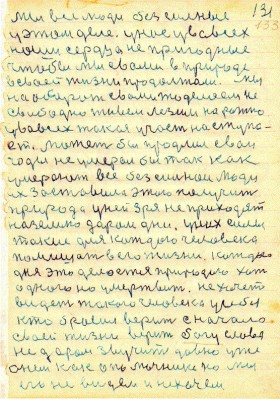 131
133
мы все люди безсилные
у этом деле. у нас у всех
наши сердца не пригодные
чтобы мы сами в природе
своей жизни продолжали. мы
наоборот сами то делаем не
свободно живем лезим на рожно
у всех такая участ наступа-
ет. может бы продлили свои
годы не умерали бы так как
умерают все безсилные люди
их заставила этого получит
природа у ней зря не приходят
на землю даром дни. у них силы
такие для каждого человека
помешат в его жизни. каждого
дня это делается природою хот
одного но умертвит. не хочет
видет такого человека у себя
кто бросил верит с начало
своей жизни верит богу слова
не даром звучит давно уже
о нем как о помочнике но мы
его не видем и не хочем